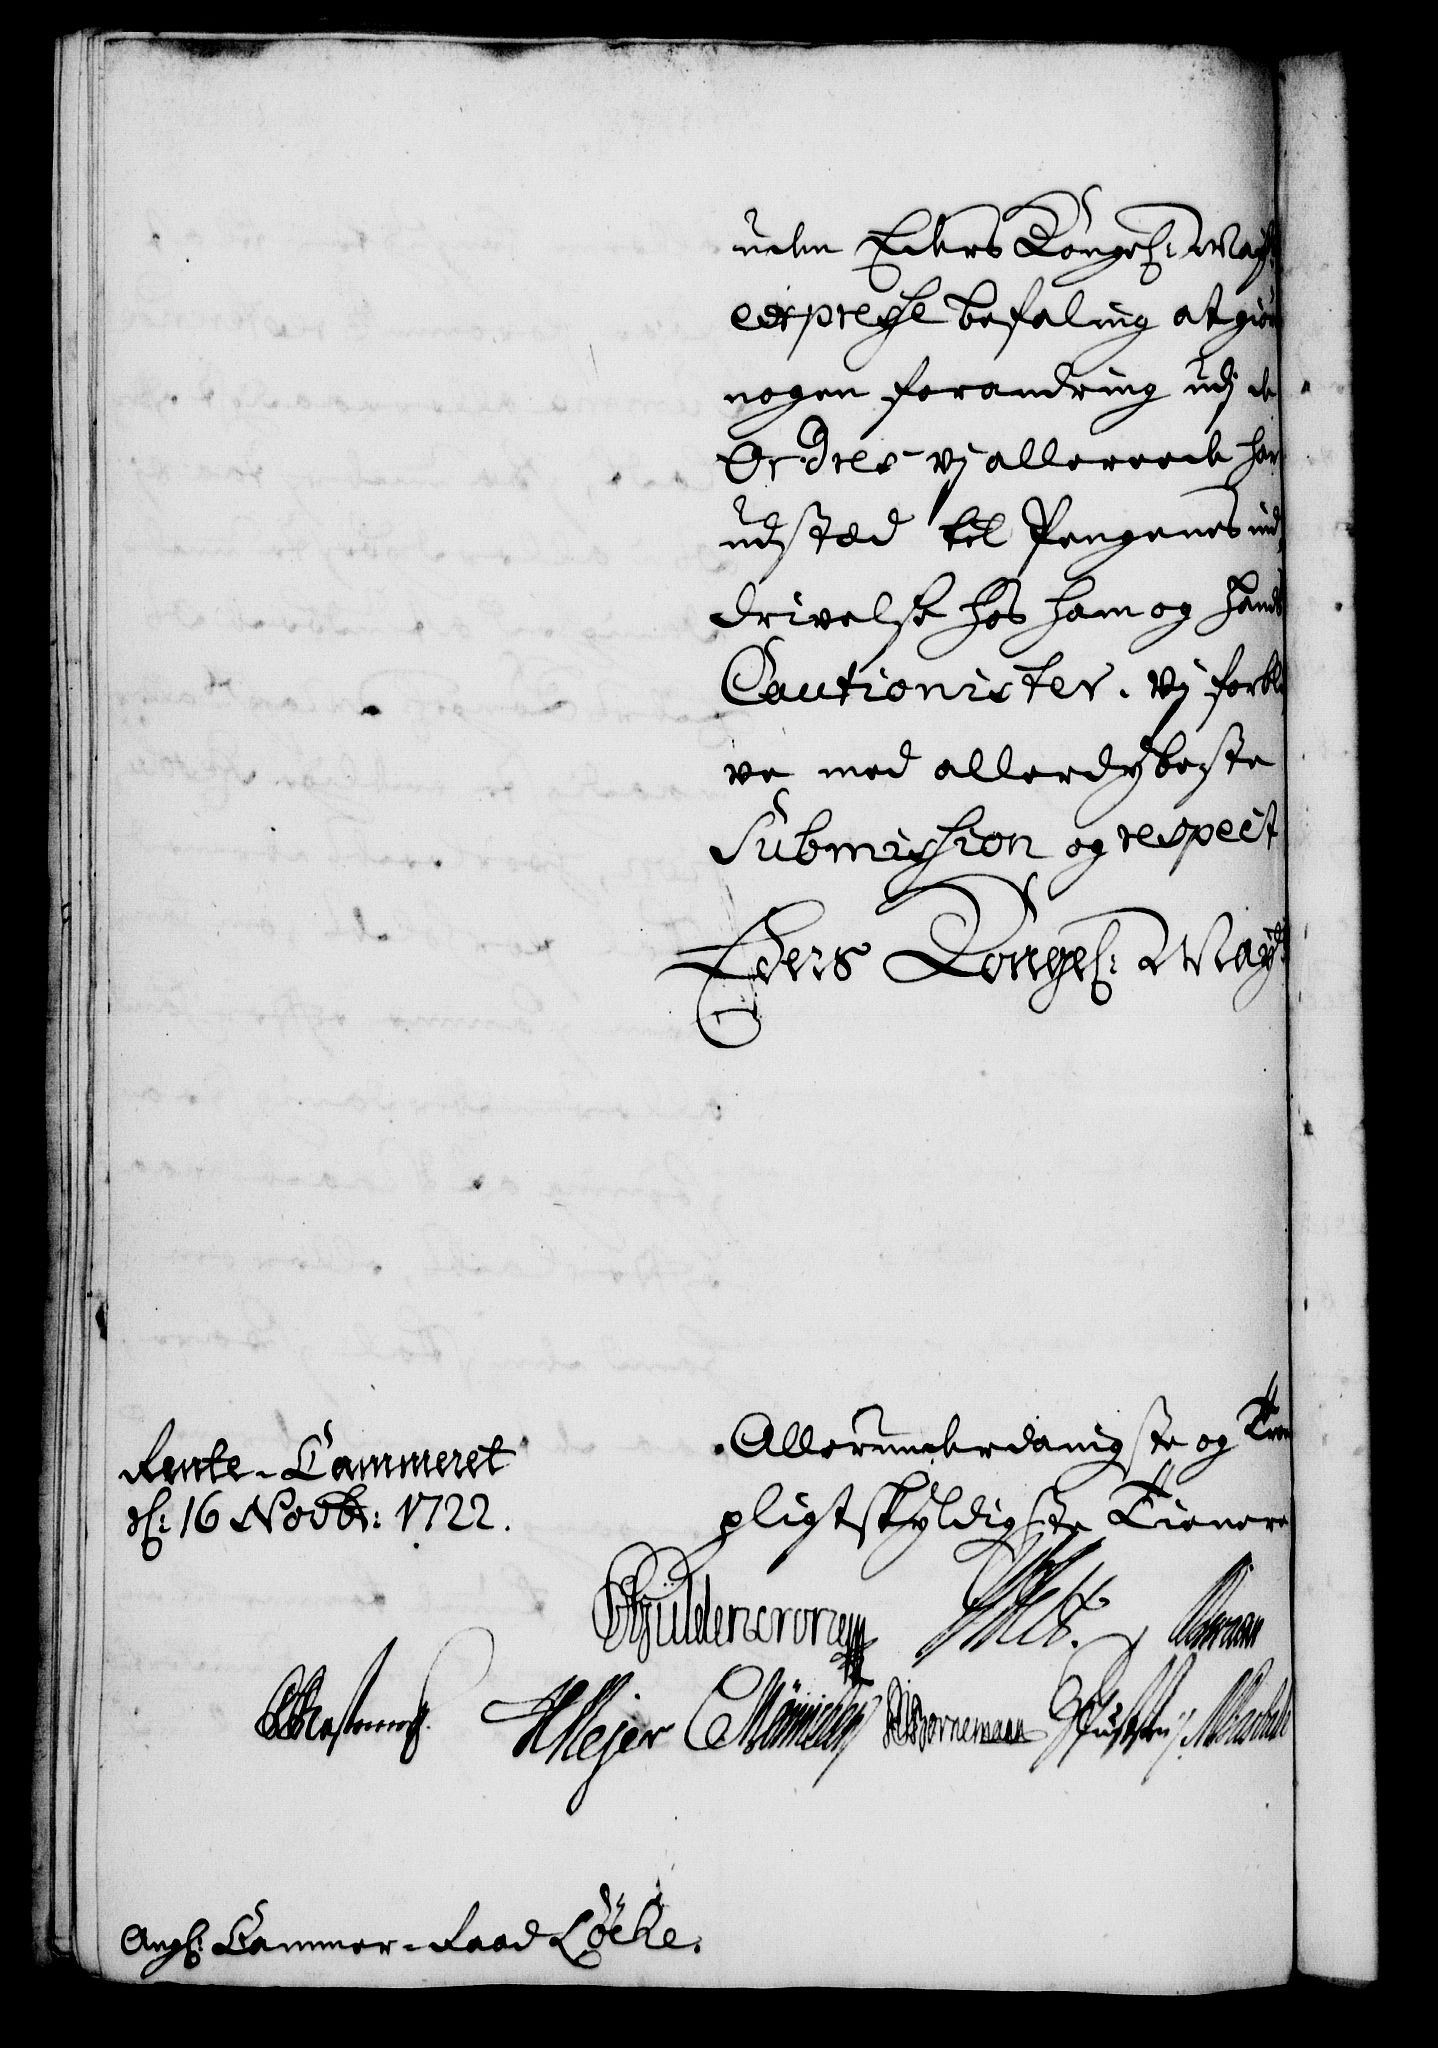 uden Eders Kongel: May:ts
expresse befaling at giøre
nogen forandring udj de
Ordres vj allereede har
udstæd til Pengenes ind,
drivelse hos ham og hands
Cautionister. vj forbli,
ve med allerdybeste
Submission og respect
Eders Kongel: May:ts
Rente-Cammeret
d: 16 Novbr: 1722.
Allerunderdanigste og Troe
pligtskyldigste Tienere
Güldencrone
HMejer Bornemann
Ang: Cammer-Raad Löcke.